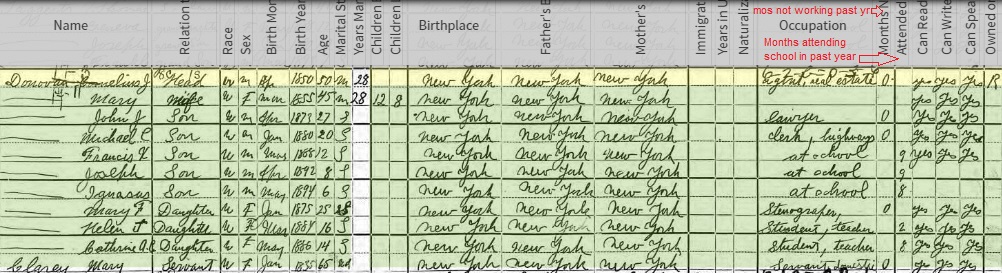 mos not working past yr
Name Relation Race Sex Birth Mon Birth Year Age Marital St Years Mar Children Children Birthplace Father's B Mother's Immigrat Years in U Naturaliz Occupation Months N Attended Can Read Can Write Can Spea Owned or
Months attending
school in past year
Donovan Cornelius J Head W M Apr 1850 50 M 28 New York New York New York real estate 0 yes yes yes R
Mary Wife W F Mar 1855 45 M 28 12 8 New York New York New York yes yes yes
John J Son W M Apr 1873 27 S New York New York New York Lawyer 0 yes yes yes
Michael C Son W M Jan 1880 20 S New York New York New York clerk, highways 0 yes yes yes
Francis X Son W M May 1888 12 S New York New York New York at school 9 yes yes yes
Joseph Son W M Apr 1892 8 S New York New York New York at school 9
Ignasius Son W M May 1894 6 S New York New York New York at school 8
Mary F Daughter W F Jan 1875 25 S New York New York New York Stenographer 0 yes yes yes
Helen T Daughter W F Mar 1884 16 S New York New York New York Student, teacher 2 yes yes yes
Cathrine Daughter W F May 1886 14 S New York New York New York Student, teacher 8 yes yes yes
Clarey Mary Servant W F Jan 1835 65 New York New York New York Servant, domestic 0 yes yes yes